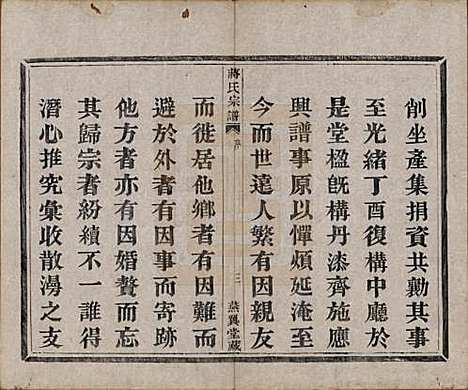 削坐產集捐資共勷其事
至光緒丁酉復構中廳於
是堂楹旣構丹漆齊施應
興譜事原以憚煩延淹至
今而世遠人繁有因親友
蔣氏宗譜 序 三 燕翼堂藏
而徙居他鄉者有因難而
避於外者有因事而寄跡
他方者亦有因婚贅而忘
其歸宗者紛續不一誰得
潛心推究彙收散湯之支